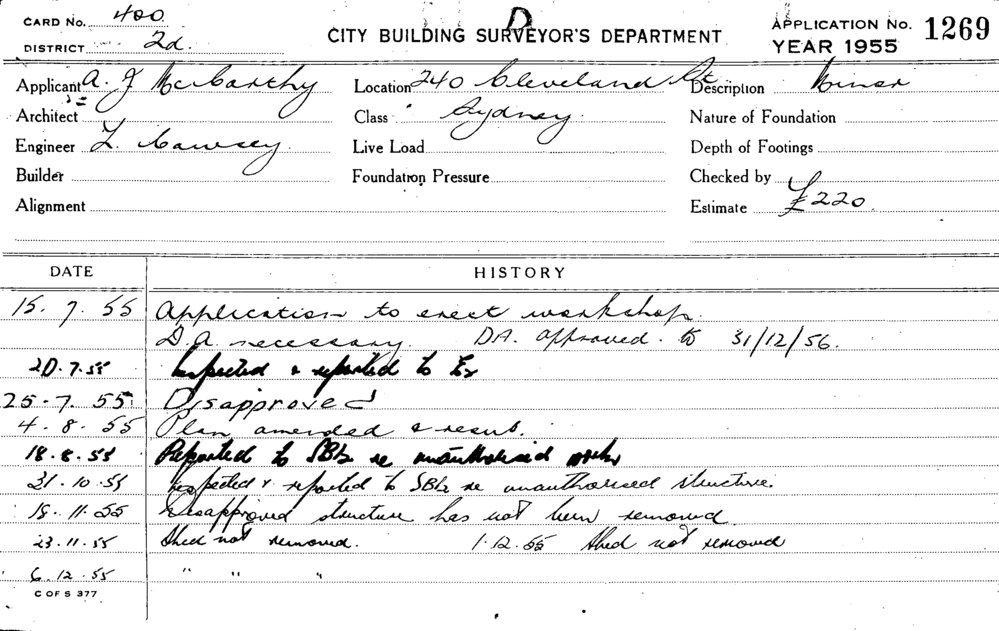 CARD No. 400
DISTRICT 2d.
D
CITY BUILDING SURVEYOR'S DEPARTMENT
APPLICATION No. 1269
YEAR 1955
Applicant A. J McCarthy
Location 240 Cleveland St
Description Minor
Architect
Class Sydney
Nature of Foundation
Engineer L. Cawsey
Live Load
Depth of Footings
Builder
Foundation Pressure
Checked by
Alignment
Estimate £220
DATE HISTORY
15. 7. 55 Application to erect workshop.
D.A. necessary. DA. approved. to 31/12/56.
20.7.55 Inspected & reported to
25.7.55 Disapproved
4.8.55 Plan amended & resub.
18.8.55 Reported to re unauthorised works
21.10.55 Inspected & reported to re unauthorised structure.
18.11.55 Disapproved structure has not been removed
23.11.55 Shed not removed. 1.12.55 Shed not removed
6.12.55 " " "
C OF S 377